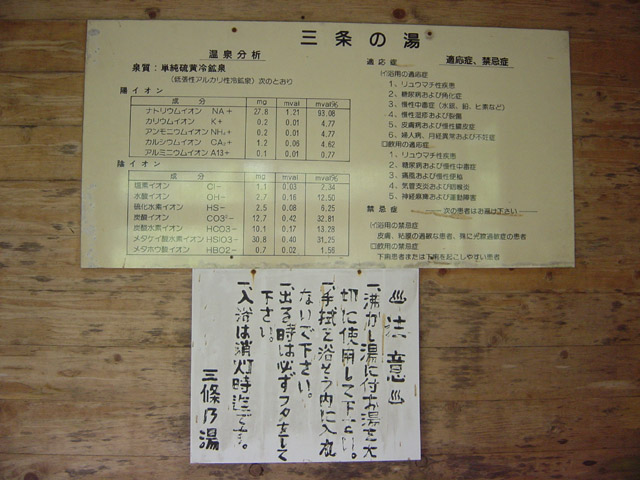 三条の湯
温泉分析
泉質：単純硫黄冷鉱泉
（低張性アルカリ性冷鉱泉）次のとおり
陽イオン
成分 mg mval mval%
ナトリウムイオン NA+ 27.8 1.21 93.08
カリウムイオン K+ 0.2 0.01 4.77
アンモニウムイオン NH4+ 0.2 0.01 4.77
カルシウムイオン CA2+ 1.2 0.06 4.62
アルミニウムイオン A13+ 0.1 0.01 0.77
陰イオン
成分 mg mval mval%
塩素イオン Cl- 1.1 0.03 2.34
水酸イオン OH- 2.7 0.16 12.50
硫化水素イオン HS- 2.5 0.08 6.25
炭酸イオン CO32- 12.7 0.42 32.81
炭酸水素イオン HCO3- 10.1 0.17 13.28
メタケイ酸水素イオン HSIO3- 30.8 0.40 31.25
メタホウ酸イオン HBO2- 0.7 0.02 1.56
適応症、禁忌症
適応症
(イ)浴用の適応症
1、リュウマチ性疾患
2、糖尿病および角化症
3、慢性中毒症（水銀、鉛、ヒ素など）
4、慢性湿疹および裂傷
5、皮膚病および慢性膿皮症
6、婦人病、月経異常および不妊症
(ロ)飲用の適応症
1、リュウマチ性疾患
2、糖尿病および慢性中毒症
3、痛風および慢性便秘
4、気管支炎および咽喉炎
5、神経麻痺および運動障害
禁忌症 次の患者はお風呂下さい
(イ)浴用の禁忌症
皮膚、粘膜の過敏な患者、殊に光線過敏症の患者
(ロ)飲用の禁忌症
下痢患者または下痢を起こしやすい患者
♨注意♨
一、沸かし湯に付お湯を大
切に使用して下さい。
一、手拭を浴そう内に入れ
ないで下さい。
一、出る時は必ずフタをして
下さい。
一、入浴は消灯時迄です。
三條乃湯